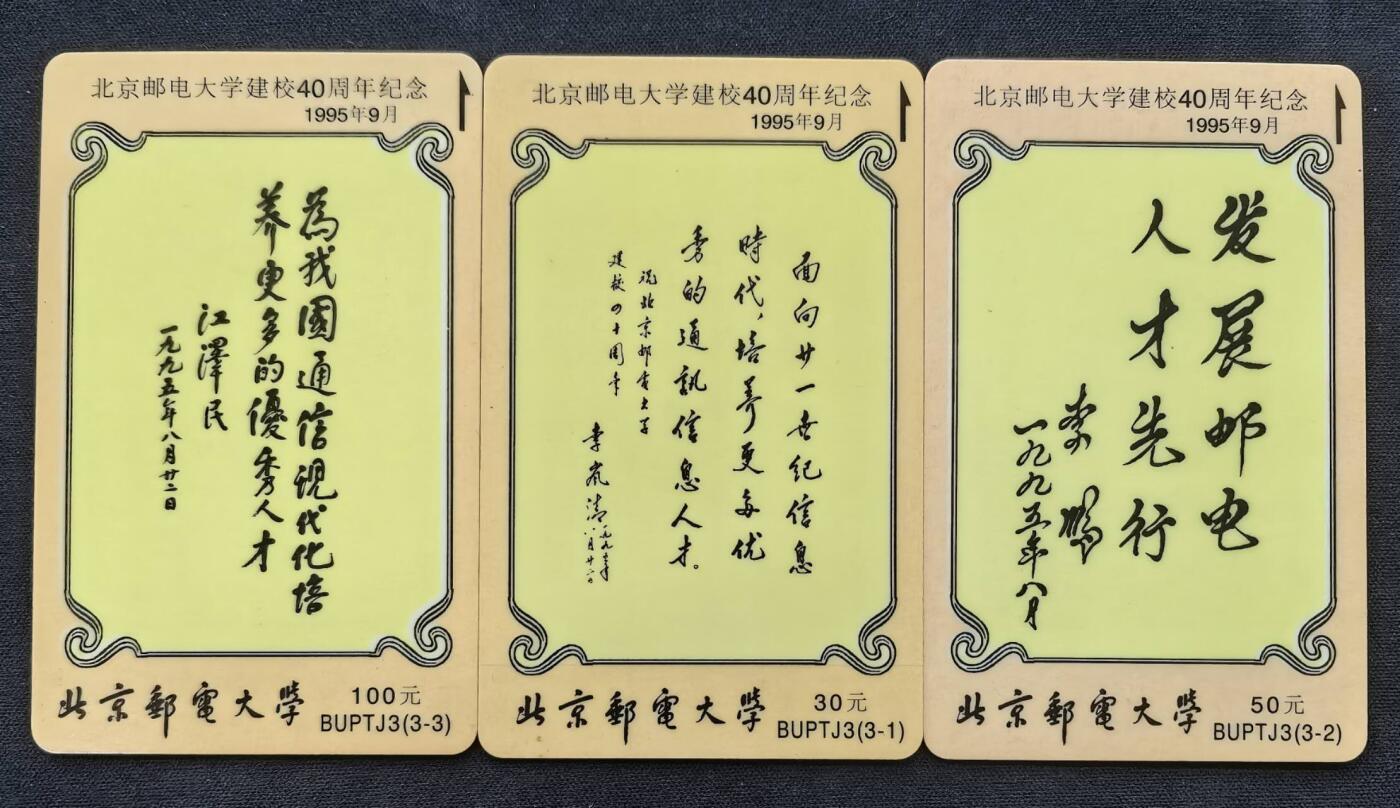 北京邮电大学建校40周年纪念
1995年9月
為我國通信現代化培
养更多的優秀人才
江澤民
一九九五年八月廿二日
北京郵電大學
100元
BUPTJ3(3-3)
北京邮电大学建校40周年纪念
1995年9月
面向廿一世纪信息
時代，培养更多优
秀的通訊信息人才。
祝北京邮电大学
建校四十周年
李岚清
一九九五年
八月廿二日
北京郵電大學
30元
BUPTJ3(3-1)
北京邮电大学建校40周年纪念
1995年9月
发展邮电
人才先行
李鹏
一九九五年八月
北京郵電大學
50元
BUPTJ3(3-2)